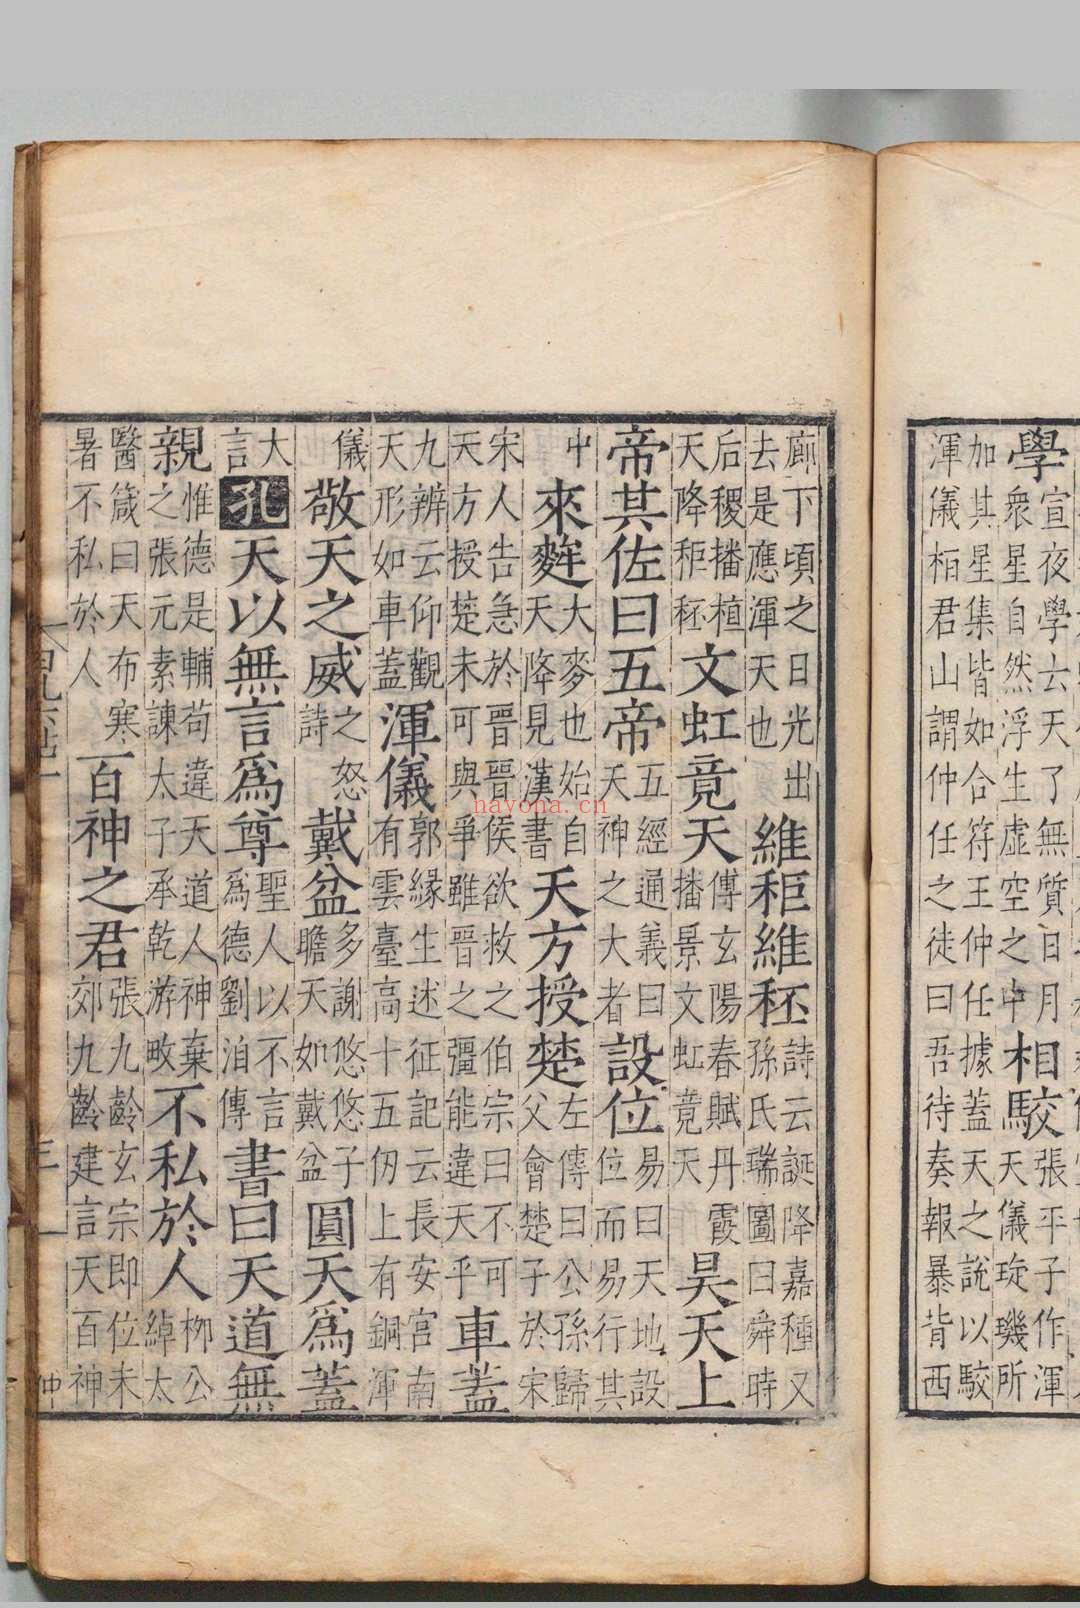 學宣夜學云天了無質日月衆星自然浮生虛空之中相駮張平子作渾天儀琁璣所
加其星集皆如合符王仲任據蓋天之說以駮渾儀栢君山謂仲任之徒曰吾待奏報暴背西
廊下頃之日光出去是應渾天也維秬維秠詩云誕降嘉種又孫氏瑞圖曰舜時
后稷播植天降秬秠文虹竟天傅玄陽春賦丹霞播景文虹竟天昊天上
帝其佐曰五帝五經通義曰天神之大者設位易曰天地設位而易行其
中來麰大麥也始自天降見漢書天方授楚左傳曰公孫歸父會楚子於宋
宋人告急於晉晉侯欲救之伯宗曰不可天方授楚未可與爭雖晉之彊能違天乎車蓋
九辨云仰觀天形如車蓋渾儀郭緣生述征記云長安宮南有雲臺高十五仞上有銅渾
儀敬天之威詩之怒戴盆多謝悠悠子瞻天如戴盆圓天爲蓋
大言孔天以無言爲尊聖人以不言爲德劉洎傳書曰天道無
親惟德是輔荀違天道人神棄之張元素諫太子承乾游畋不私於人柳公綽太
醫箴曰天布寒暑不私於人百神之君張九齡玄宗即位未郊九齡建言天百神
三
仲
nayona.cn